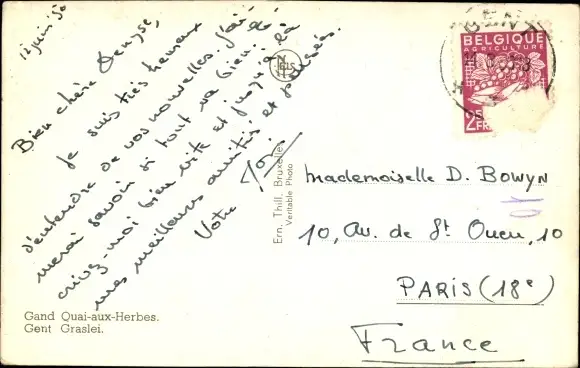 12 juin 50
Bien chère Denyse,
Je suis très heureux
d'entendre de vos nouvelles. J'ai
merai savoir si tout va bien. é-
crivez-moi bien vite et jusque là
mes meilleures amitiés et pensées.
Votre
NELS
Ern. Thill, Bruxelles
Veritable Photo
GENT
BELGIQUE
AGRICULTURE
2
FR
Mademoiselle D. Bowyn
10, Av. de St Ouen, 10
PARIS (18e)
France
Gand Quai-aux-Herbes.
Gent Graslei.